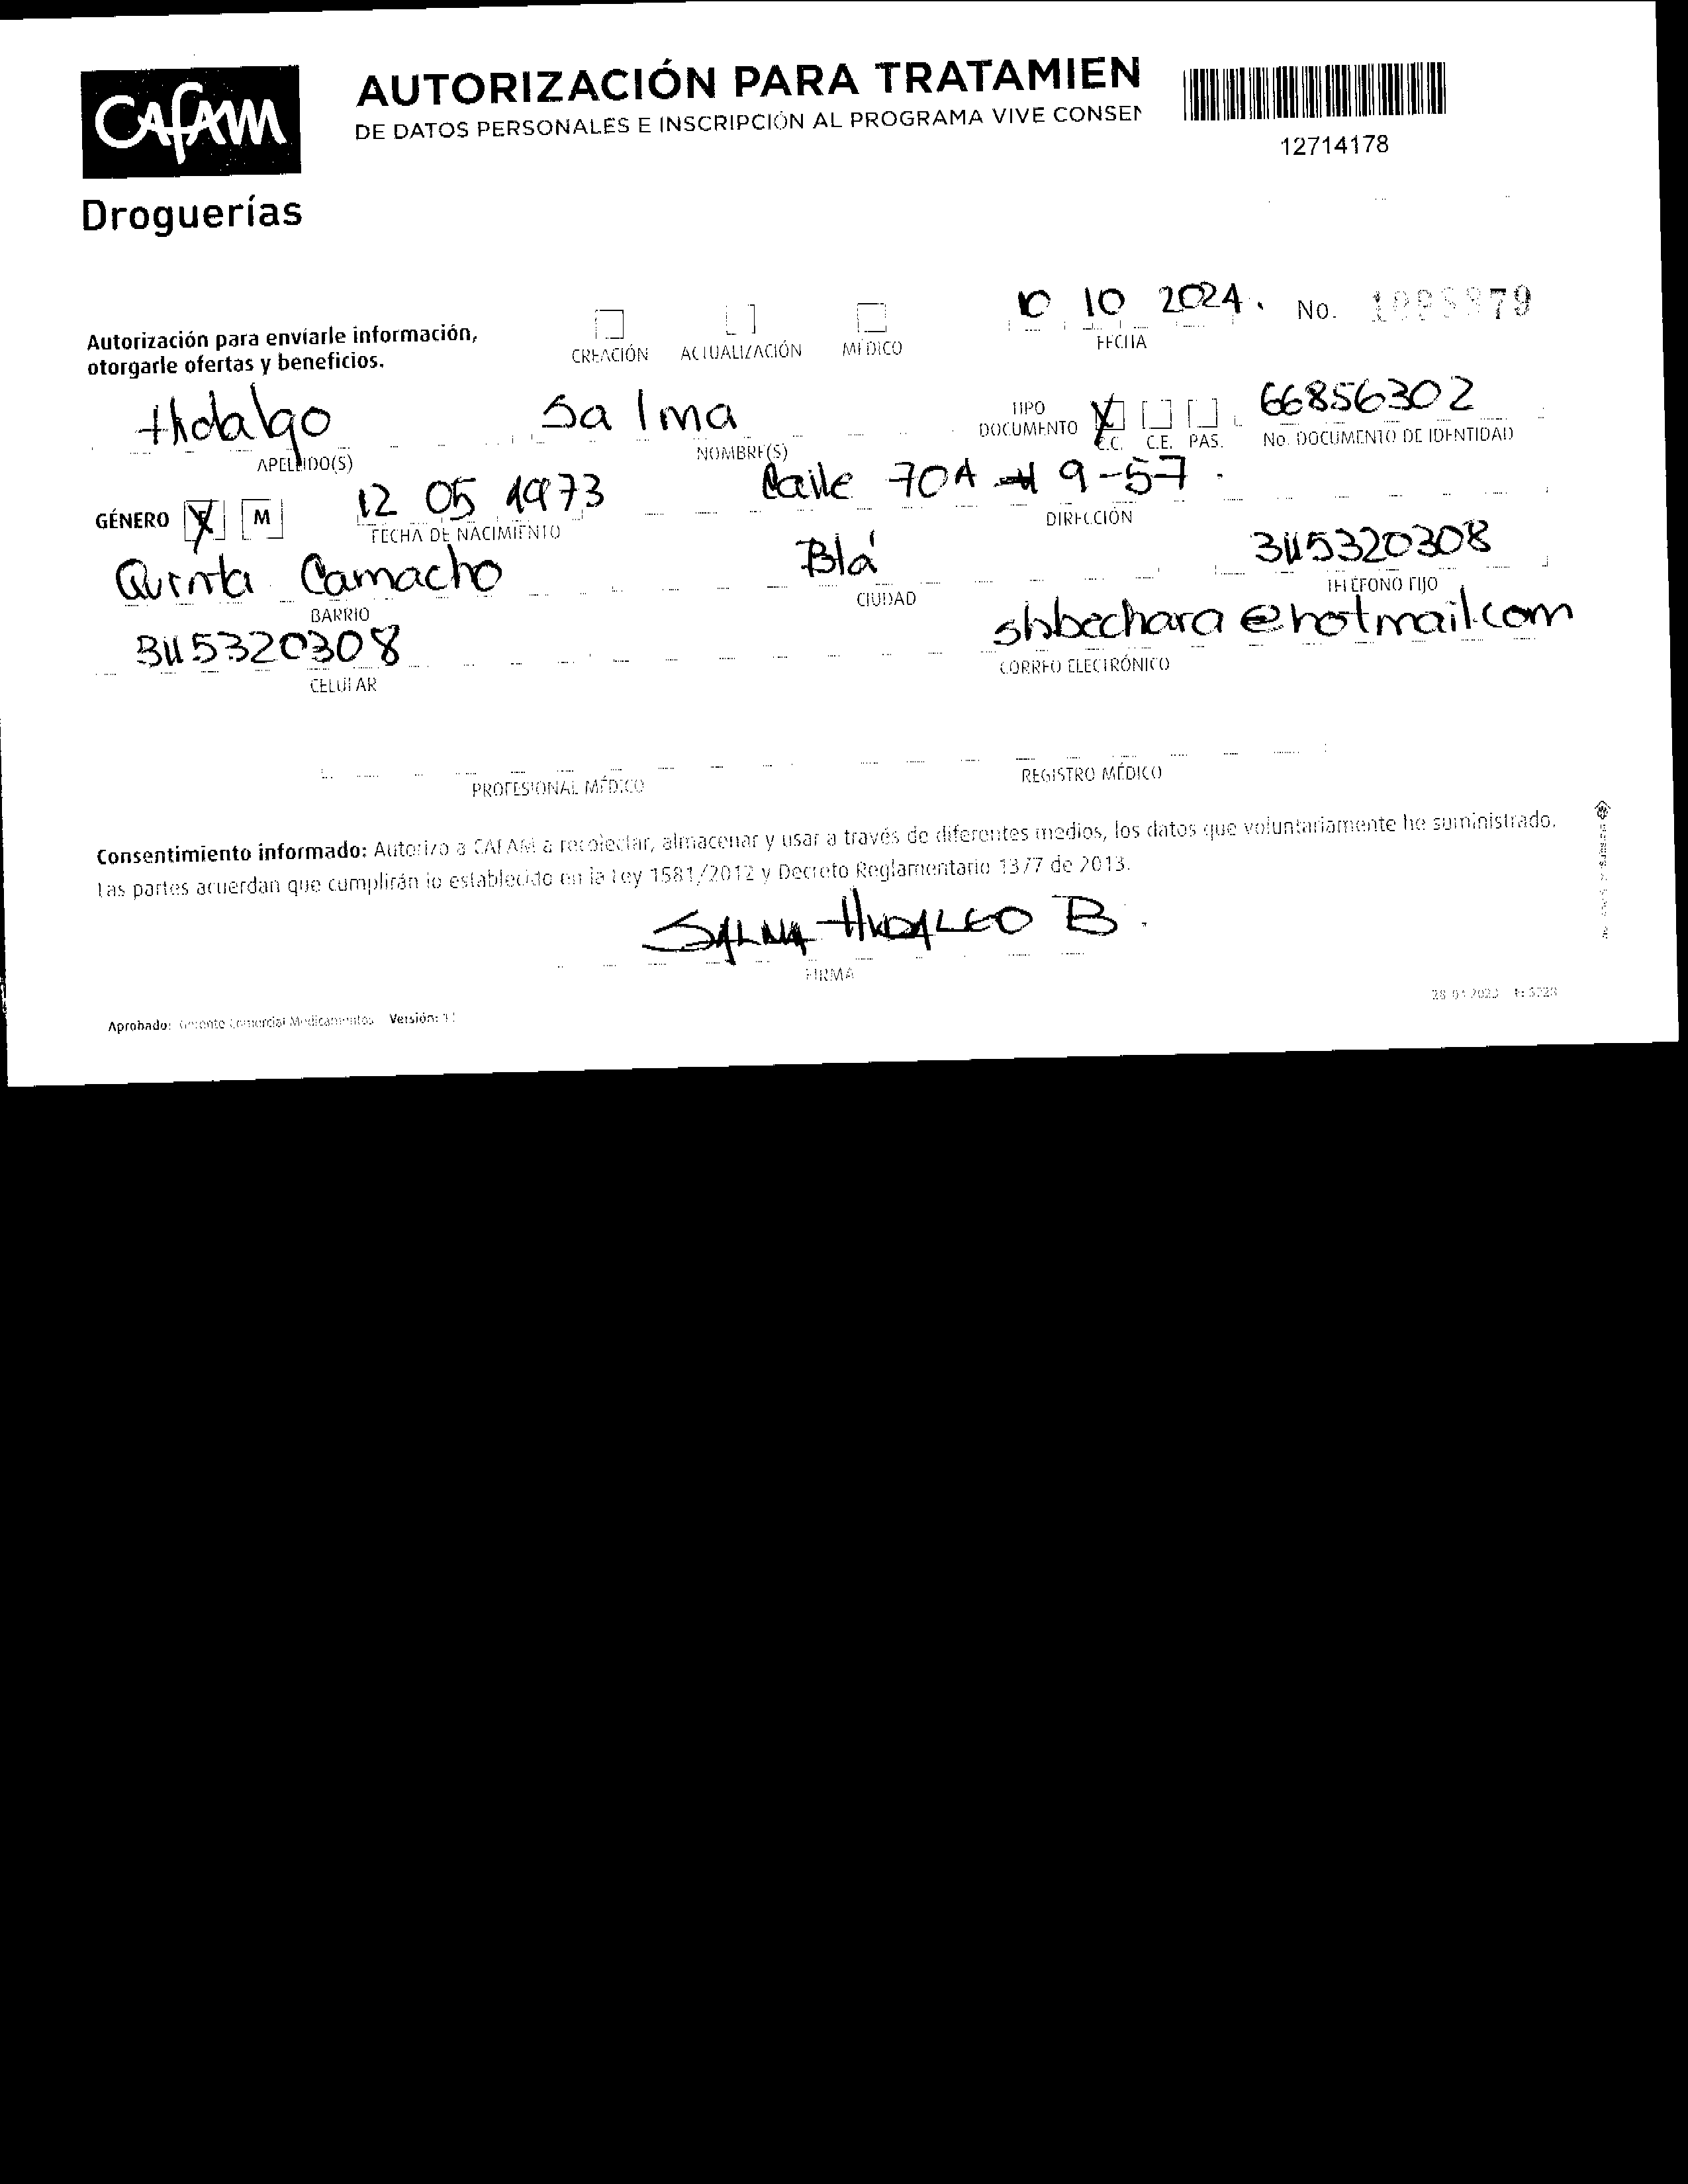 CAFAM
Droguerías
AUTORIZACIÓN PARA TRATAMIEN
DE DATOS PERSONALES E INSCRIPCIÓN AL PROGRAMA VIVE CONSEN
12714178
Autorización para enviarle información,
otorgarle ofertas y beneficios.
CREACIÓN ACTUALIZACIÓN MÉDICO
10 10 2024. No.
FECHA
Hidalgo Salma TIPO DOCUMENTO X 66856302
APELLIDO(S) NOMBRE(S) C.C. C.E. PAS. No. DOCUMENTO DE IDENTIDAD
GÉNERO F M 12 05 1973 Calle 70A 9-57.
FECHA DE NACIMIENTO DIRECCIÓN
Quinta Camacho Btá 3115320308
BARRIO CIUDAD TELÉFONO FIJO
3115320308 shbechara@hotmail.com
CELULAR CORREO ELECTRÓNICO
PROFESIONAL MÉDICO REGISTRO MÉDICO
Consentimiento informado: Autorizo a CAFAM a recolectar, almacenar y usar a través de diferentes medios, los datos que voluntariamente he suministrado.
Las partes acuerdan que cumplirán lo establecido en la Ley 1581/2012 y Decreto Reglamentario 1377 de 2013.
SALMA HIDALGO B.
FIRMA
Aprobado: Gerente Comercial Medicamentos Versión: